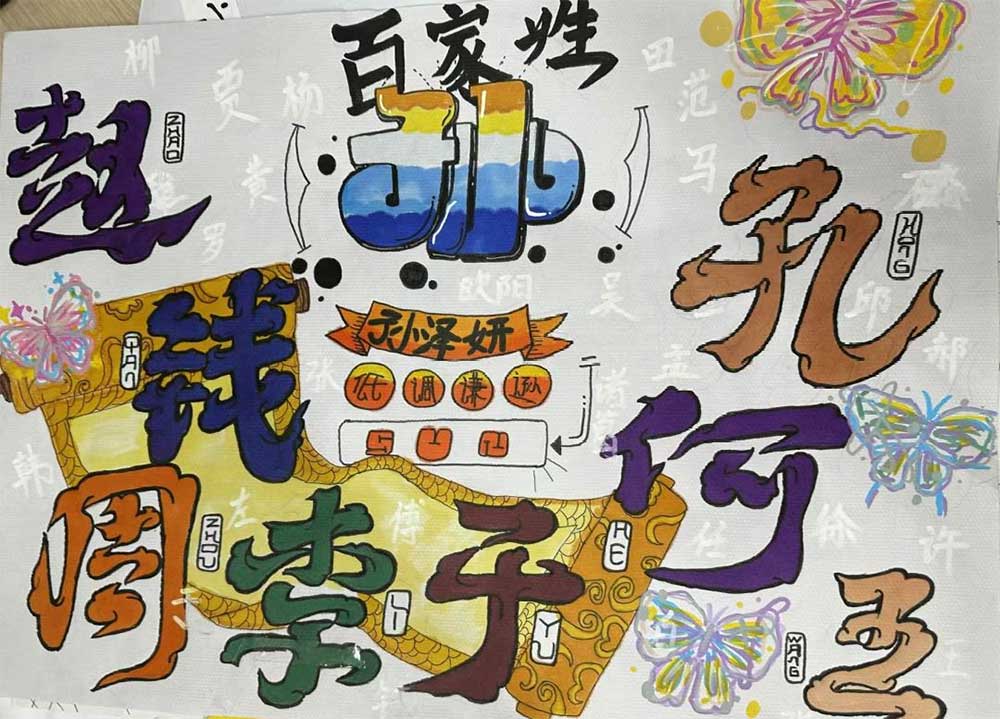 百家姓
柳
贾
杨
田
范
赵
ZHAO
孙
黄
马
罗
孔
KONG
欧阳
吴
邱
钱
QIAN
孙泽妍
孟
郝
张
低调谦逊
诸葛
SUN
韩
何
HE
周
ZHOU
左
李
LI
傅
于
YU
任
徐
许
王
WANG